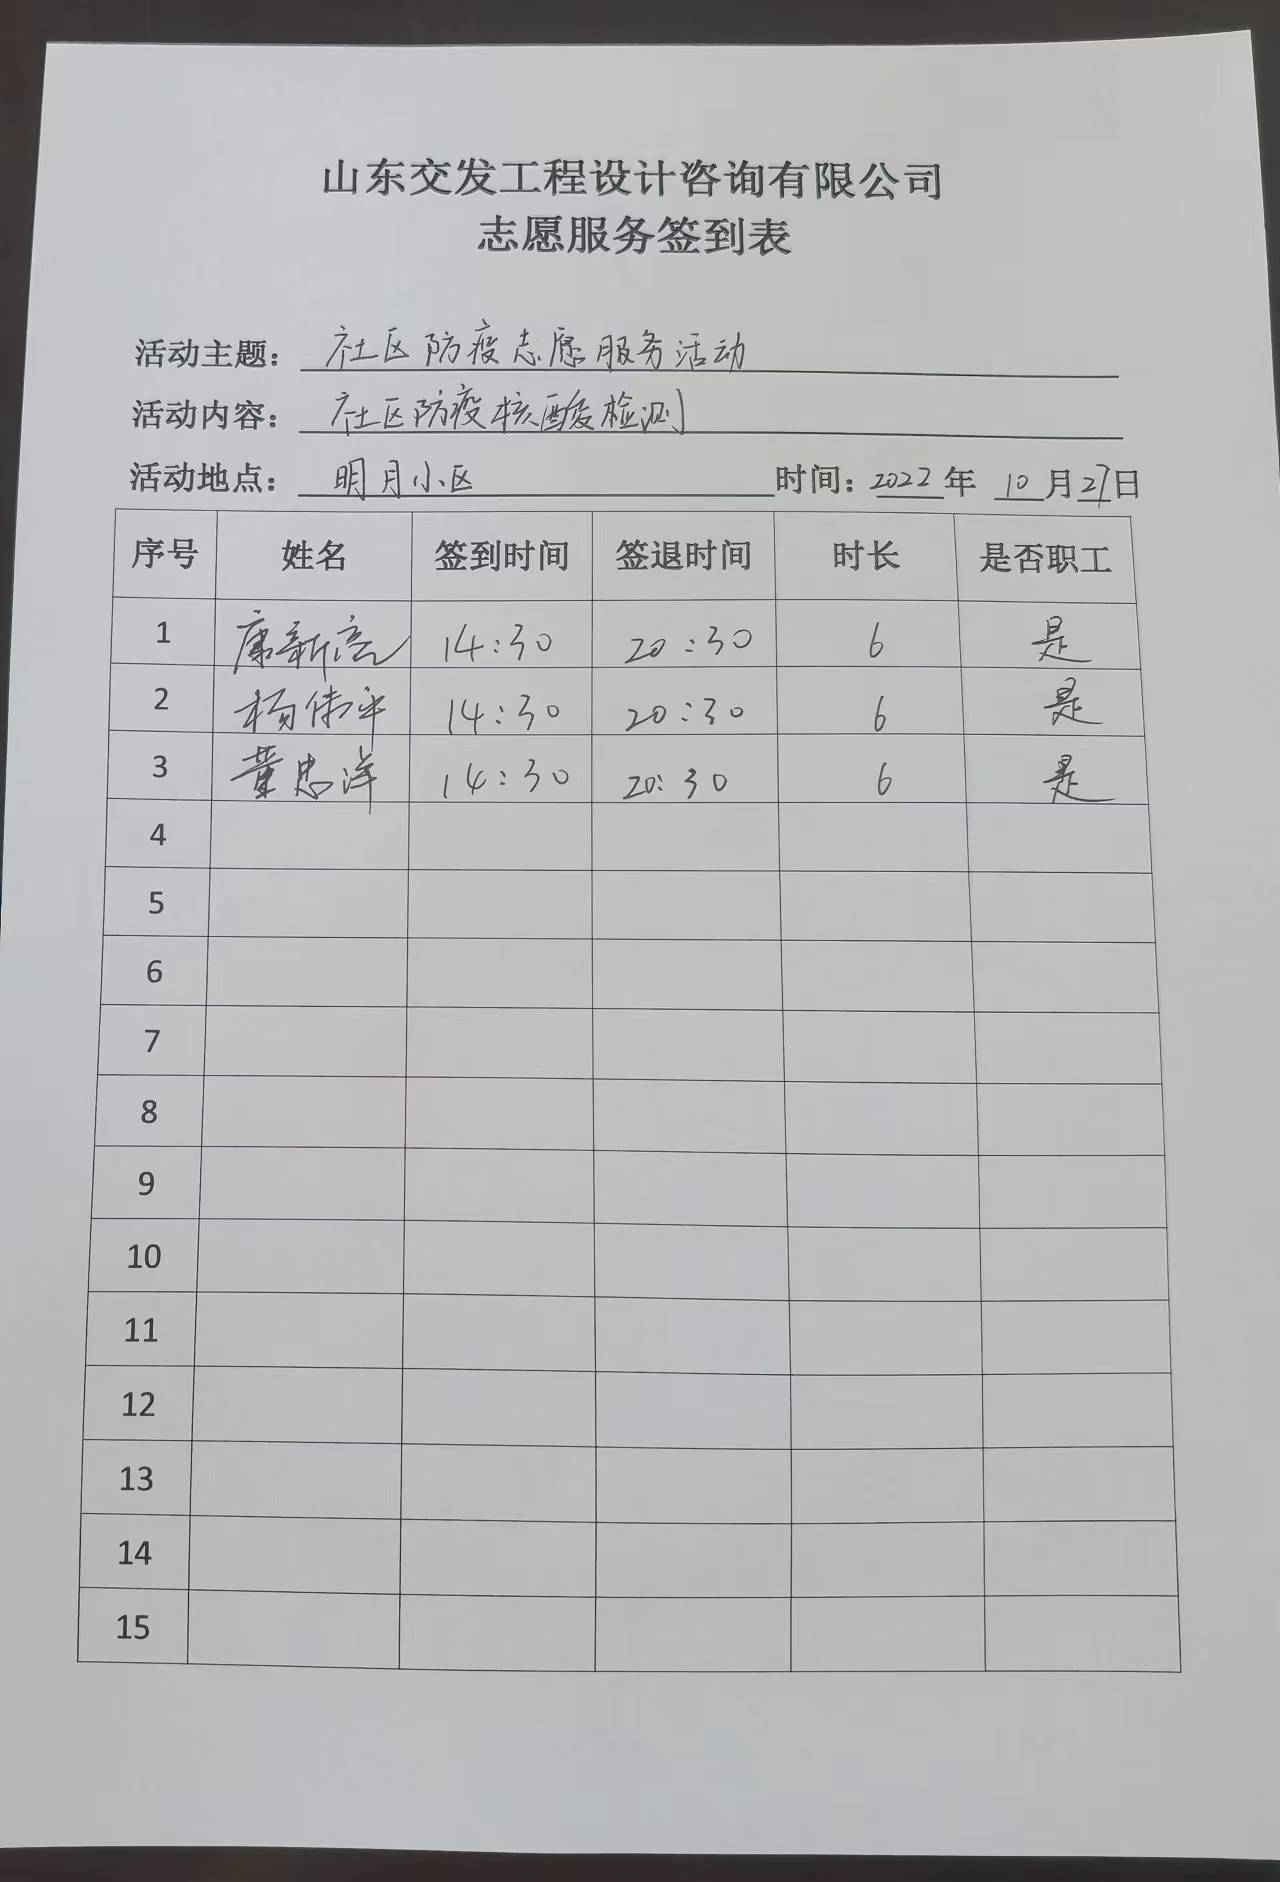 山东交发工程设计咨询有限公司
志愿服务签到表
活动主题：社区防疫志愿服务活动
活动内容：社区防疫核酸检测
活动地点：明月小区 时间：2022年 10月27日
序号 姓名 签到时间 签退时间 时长 是否职工
1 康新亮 14:30 20:30 6 是
2 杨伟平 14:30 20:30 6 是
3 董忠洋 14:30 20:30 6 是
4
5
6
7
8
9
10
11
12
13
14
15